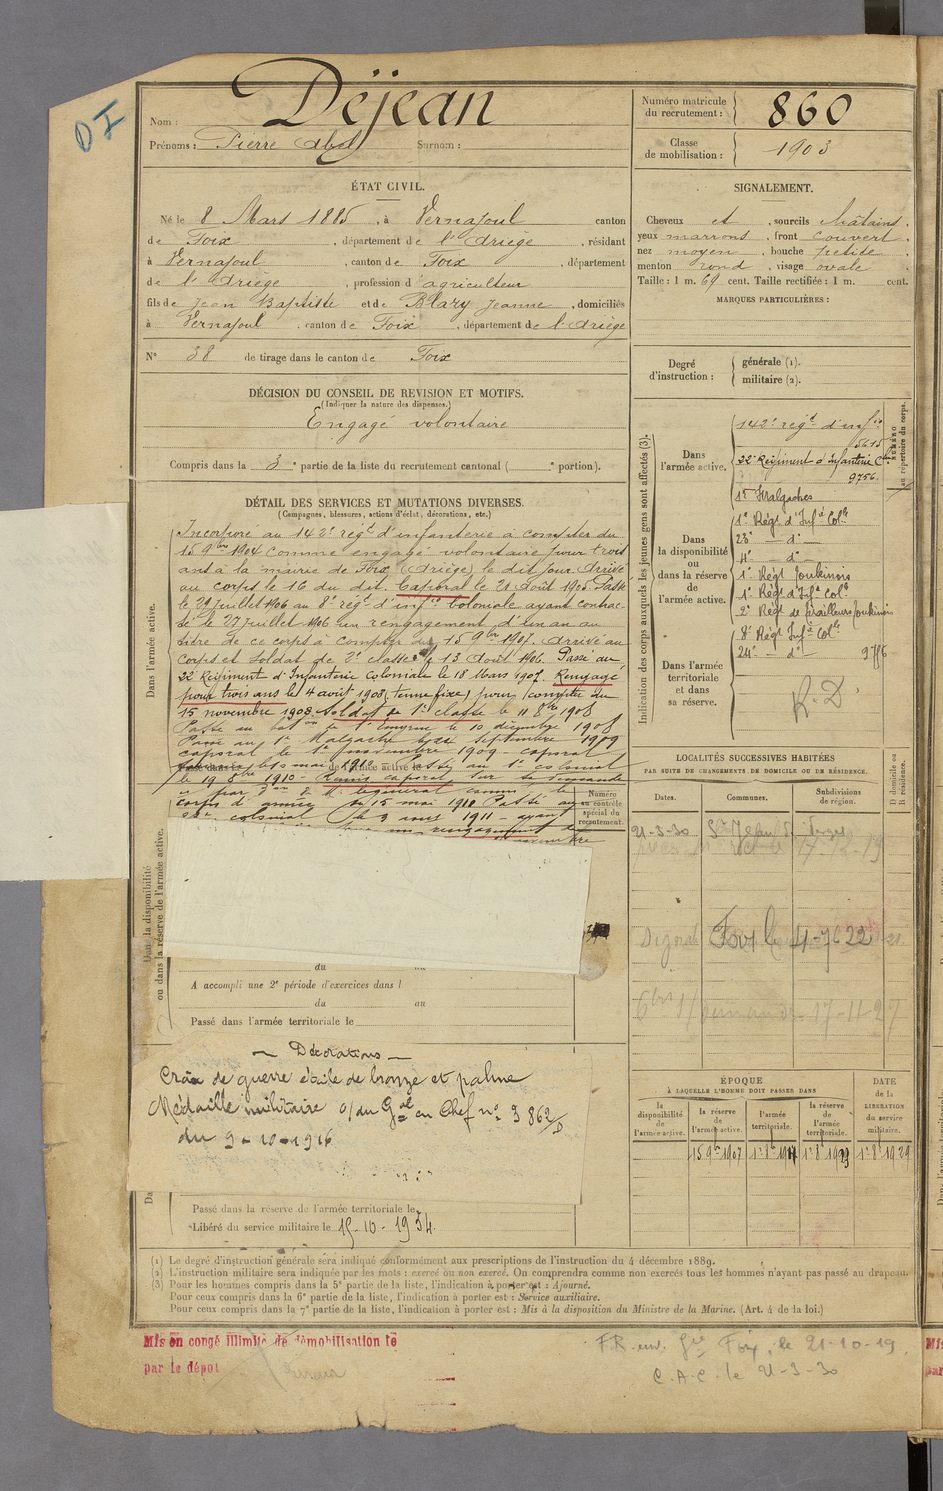 DI
Nom : Déjean
Prénoms : Pierre Abel Surnom :
Numéro matricule du recrutement : 860
Classe de mobilisation : 1903
ÉTAT CIVIL.
Né le 8 Mars 1885, à Vernajoul canton
de Foix, département de l'Ariège, résidant
à Vernajoul, canton de Foix, département
de l'Ariège, profession d'agriculteur
fils de Jean Baptiste et de Blazy Jeanne, domiciliés
à Vernajoul, canton de Foix, département de l'Ariège
N° 38 de tirage dans le canton de Foix
SIGNALEMENT.
Cheveux et, sourcils châtains,
yeux marrons, front couvert,
nez moyen, bouche petite,
menton rond, visage ovale.
Taille : 1 m. 69 cent. Taille rectifiée : 1 m. cent.
MARQUES PARTICULIÈRES :
Degré d'instruction :
générale (1).
militaire (2).
DÉCISION DU CONSEIL DE REVISION ET MOTIFS.
(Indiquer la nature des dispenses.)
Engagé volontaire
Compris dans la 3e partie de la liste du recrutement cantonal ( e portion).
DÉTAIL DES SERVICES ET MUTATIONS DIVERSES.
(Campagnes, blessures, actions d'éclat, décorations, etc.)
Dans l'armée active.
Incorporé au 142e régt d'infanterie à compter du
15 9bre 1904 comme engagé volontaire pour trois
ans à la mairie de Foix (Ariège) le dit jour. Arrivé
au corps le 16 du dit. Caporal le 21 Août 1905. Passé
le 29 Juillet 1906 au 8e régt d'infie Coloniale ayant contrac-
té le 27 Juillet 1906 un rengagement d'un an au
titre de ce corps à compter du 15 9bre 1907. Arrivé au
corps et soldat de 2e classe le 13 Août 1906. Passé au
22e Régiment d'Infanterie Coloniale le 18 Mars 1907. Rengagé
pour trois ans le 4 août 1908 (tenue fixe) pour compter du
15 novembre 1908. Soldat de 1e classe le 11 8bre 1908
Passé au baton de l'Emyrne le 10 décembre 1908
Passé au 1er Malgache septembre 1909
caporal le 1er novembre 1909 - caporal
le 10 mai 1910 Passé au 1er colonial
le 19 8bre 1910 - Remis caporal sur sa demande
corps d'armée du 15 mai 1911 Passé au
colonial le 3 mars 1911 - ayant
rengagement
Numéro au contrôle spécial du recrutement.
Dans la disponibilité ou dans la réserve de l'armée active.
du au
A accompli une 2e période d'exercices dans l
du au
Passé dans l'armée territoriale le
Décorations
Croix de guerre étoile de bronze et palme
Médaille militaire o/ du Gal en Chef no 3862/D
du 9-10-1916
Passé dans la réserve de l'armée territoriale le
Libéré du service militaire le 15-10-1934.
Indication des corps auxquels les jeunes gens sont affectés (3).
NUMÉRO au répertoire du corps.
Dans l'armée active.
142e régt d'infie
5615
22e Régiment d'Infanterie Cle
9756
1er Malgaches
Dans la disponibilité ou dans la réserve de l'armée active.
1er Régt d'Infie Colle
23e - d° -
4e - d° -
1er Régt Tonkinois
1er Régt d'Infie Colle
2e Régt de Tirailleurs Tonkinois
Dans l'armée territoriale et dans sa réserve.
8e Régt Infie Colle
24e - d° - 9756
R.D
LOCALITÉS SUCCESSIVES HABITÉES
PAR SUITE DE CHANGEMENTS DE DOMICILE OU DE RÉSIDENCE.
Dates. Communes. Subdivisions de région. D domicile ou R résidence.
21-3-30 St Jean de Verges
17-12-19
Foix
17-11-27
ÉPOQUE
À LAQUELLE L'HOMME DOIT PASSER DANS
la disponibilité de l'armée active.
la réserve de l'armée active.
l'armée territoriale.
la réserve de l'armée territoriale.
DATE de la LIBÉRATION du service militaire.
15 9bre 1907
1er 8bre 1929
(1) Le degré d'instruction générale sera indiqué conformément aux prescriptions de l'instruction du 4 décembre 1889.
(2) L'instruction militaire sera indiquée par les mots : exercé ou non exercé. On comprendra comme non exercés tous les hommes n'ayant pas passé au drapeau.
(3) Pour les hommes compris dans la 5e partie de la liste, l'indication à porter est : Ajourné.
Pour ceux compris dans la 6e partie de la liste, l'indication à porter est : Service auxiliaire.
Pour ceux compris dans la 7e partie de la liste, l'indication à porter est : Mis à la disposition du Ministre de la Marine. (Art. 4 de la loi.)
Mis en congé illimité de démobilisation le
par le dépôt
F.R. env. Gie Foix, le 21-10-19
C.A.C. le 21-3-30